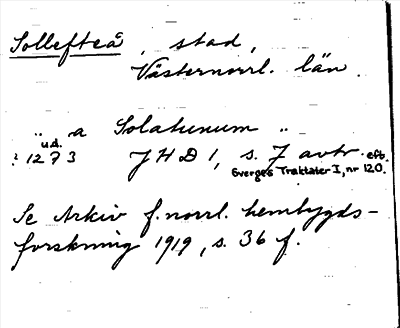 Sollefteå, stad,
Västernorrl. län.
„ a Solatunum „
u.d.
: 1273 JHD 1, s. 7 avtr. eft.
Sverges Traktater I, nr 120.
Se Arkiv f. norrl. hembygds-
forskning 1919, s. 36 f.